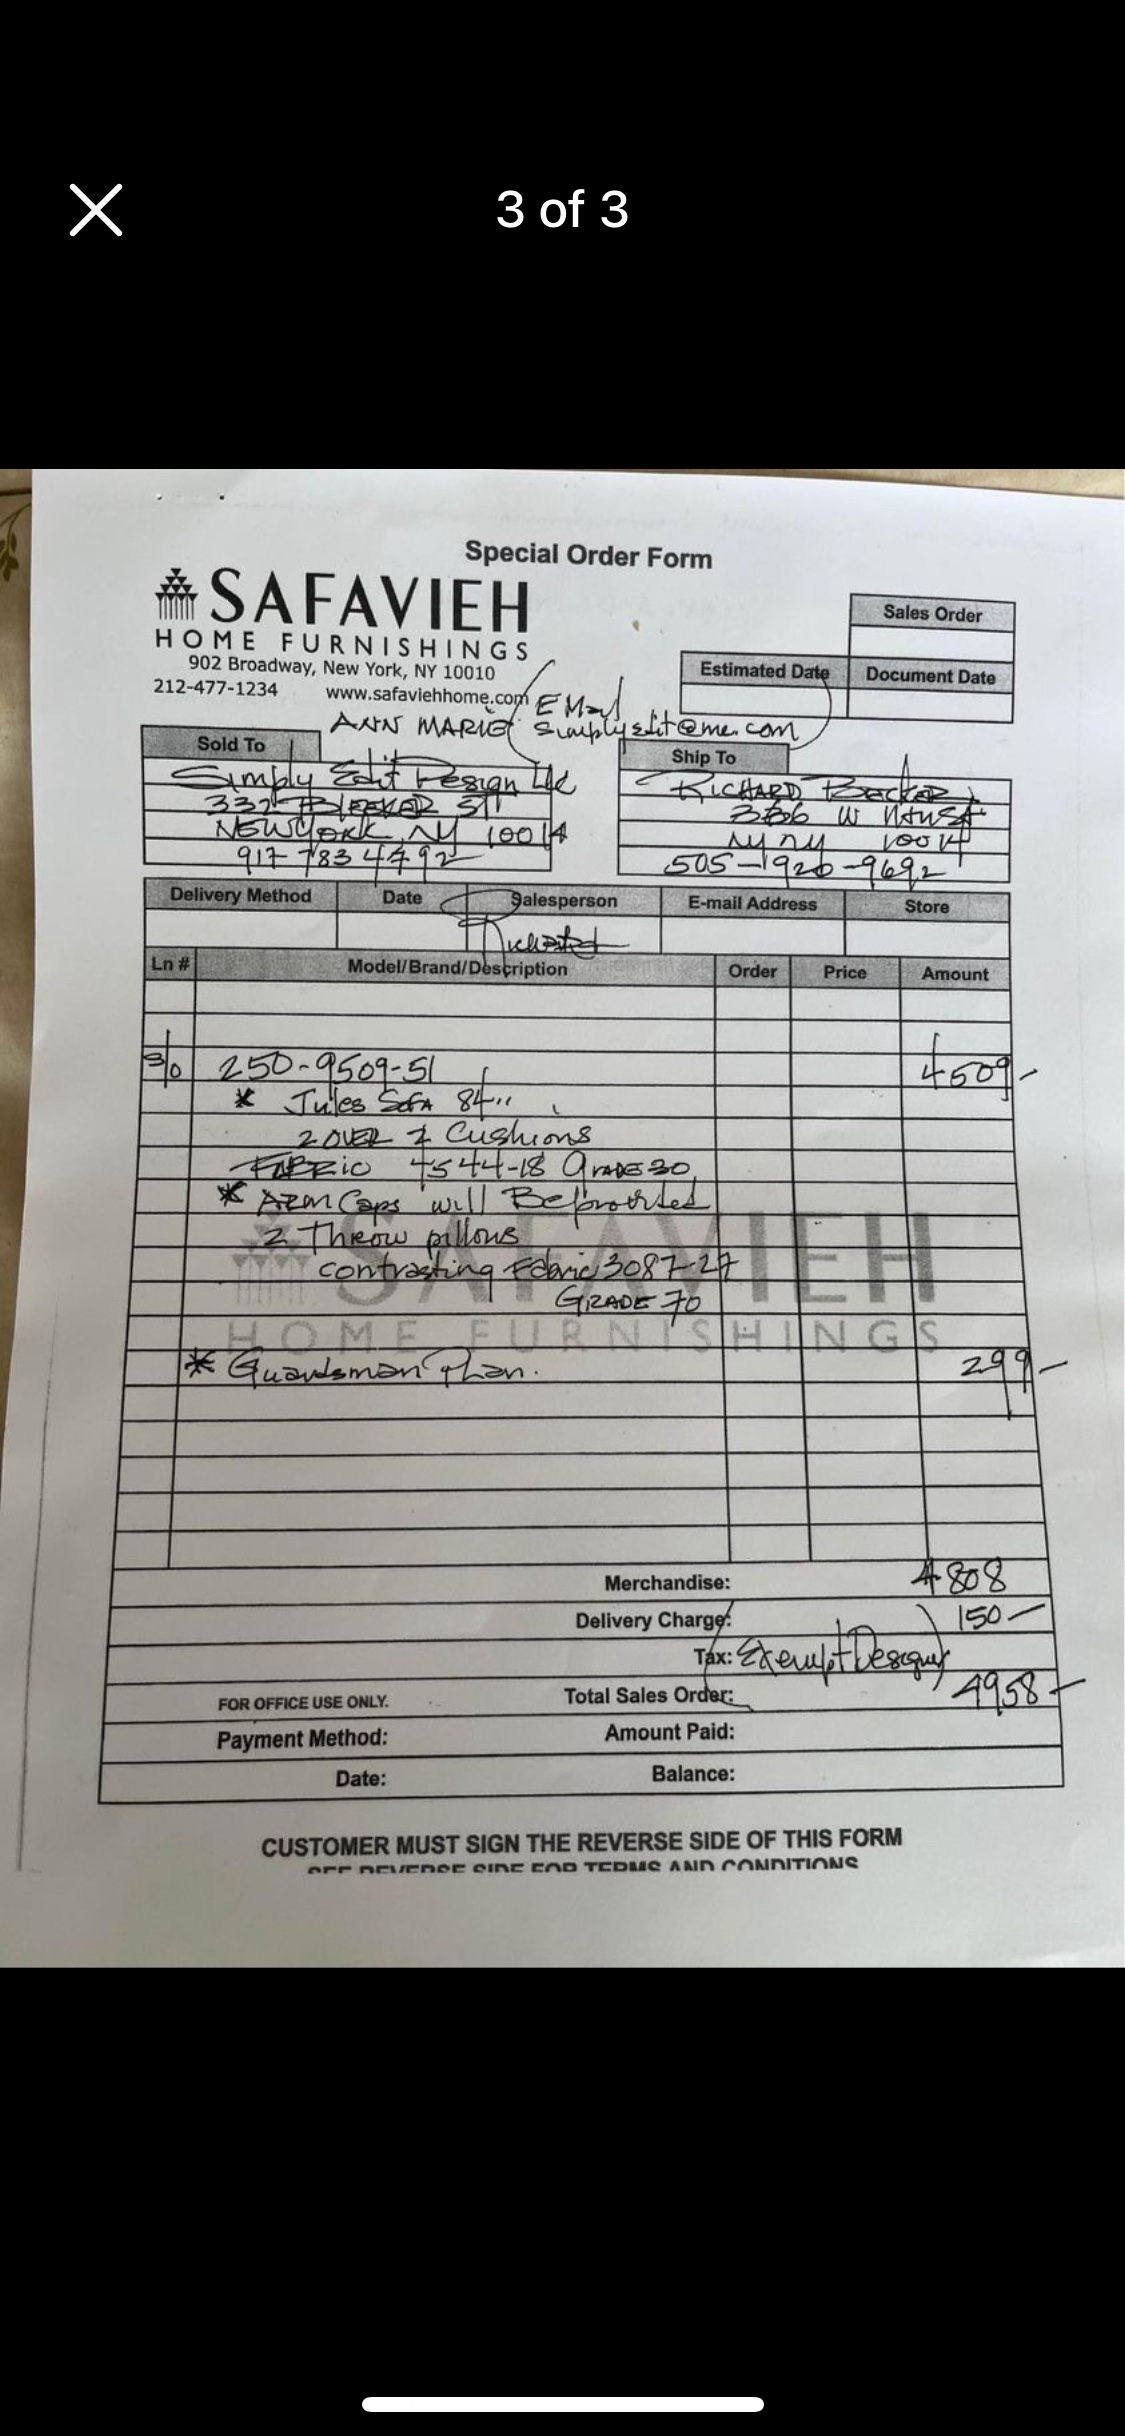 3 of 3
Special Order Form
SAFAVIEH
HOME FURNISHINGS
902 Broadway, New York, NY 10010
212-477-1234 www.safaviehhome.com
Sales Order
Estimated Date Document Date
EMail
ANN MARIE simplyedit@me.com
Sold To
Simply Edit Design LLC
332 BLEEKER ST
NEW YORK, NY 10014
917 783 4792
Ship To
RICHARD Becker
336 W
NY NY 10014
505-1920-9692
Delivery Method Date Salesperson E-mail Address Store
Ln # Model/Brand/Description Order Price Amount
S/O 250-9509-51 4509-
* Jules SOFA 84"
2 OVER 2 Cushions
FABRIC 4544-18 GRADE 30
* Arm Caps will Be provided
2 Throw pillows
contrasting Fabric 3087-27
GRADE 70
SAFAVIEH
HOME FURNISHINGS
* Guardsman Plan. 299-
Merchandise: 4808
Delivery Charge: 150-
Tax: Exempt Designer
FOR OFFICE USE ONLY. Total Sales Order: 4958-
Payment Method: Amount Paid:
Date: Balance:
CUSTOMER MUST SIGN THE REVERSE SIDE OF THIS FORM
SEE REVERSE SIDE FOR TERMS AND CONDITIONS